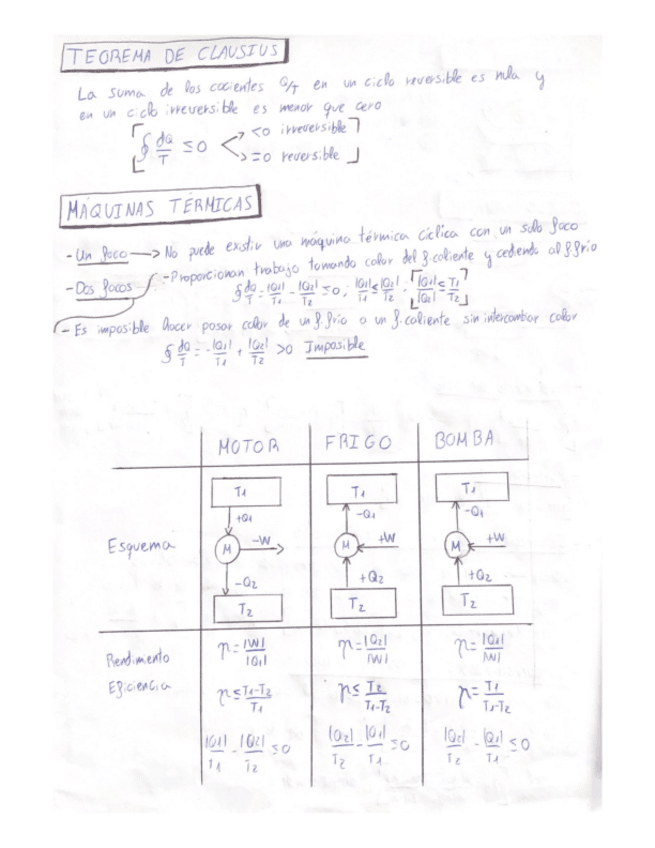 TEOREMA DE CLAUSIUS
La suma de los cocientes Q/T en un ciclo reversible es nula y
en un ciclo irreversible es menor que cero
∮ dQ/T ≤ 0 < <0 irreversible
=0 reversible
MÁQUINAS TÉRMICAS
- Un foco → No puede existir una máquina térmica cíclica con un solo foco
- Dos focos - Proporcionan trabajo tomando calor del f.caliente y cediendo al f.frío
∮ dQ/T = |Q1|/T1 - |Q2|/T2 ≤ 0; |Q1|/T1 ≤ |Q2|/T2; [|Q1|/|Q2| ≤ T1/T2]
- Es imposible hacer pasar calor de un f.frío a un f.caliente sin intercambiar calor
∮ dQ/T = -|Q1|/T1 + |Q2|/T2 > 0 Imposible
MOTOR FRIGO BOMBA
T1 T1 T1
+Q1 -Q1 -Q1
Esquema M -W M +W M +W
-Q2 +Q2 +Q2
T2 T2 T2
Rendimiento η = |W|/|Q1| η = |Q2|/|W| η = |Q1|/|W|
Eficiencia η ≤ T1-T2/T1 η ≤ T2/T1-T2 η = T1/T1-T2
|Q1|/T1 - |Q2|/T2 ≤ 0 |Q2|/T2 - |Q1|/T1 ≤ 0 |Q2|/T2 - |Q1|/T1 ≤ 0